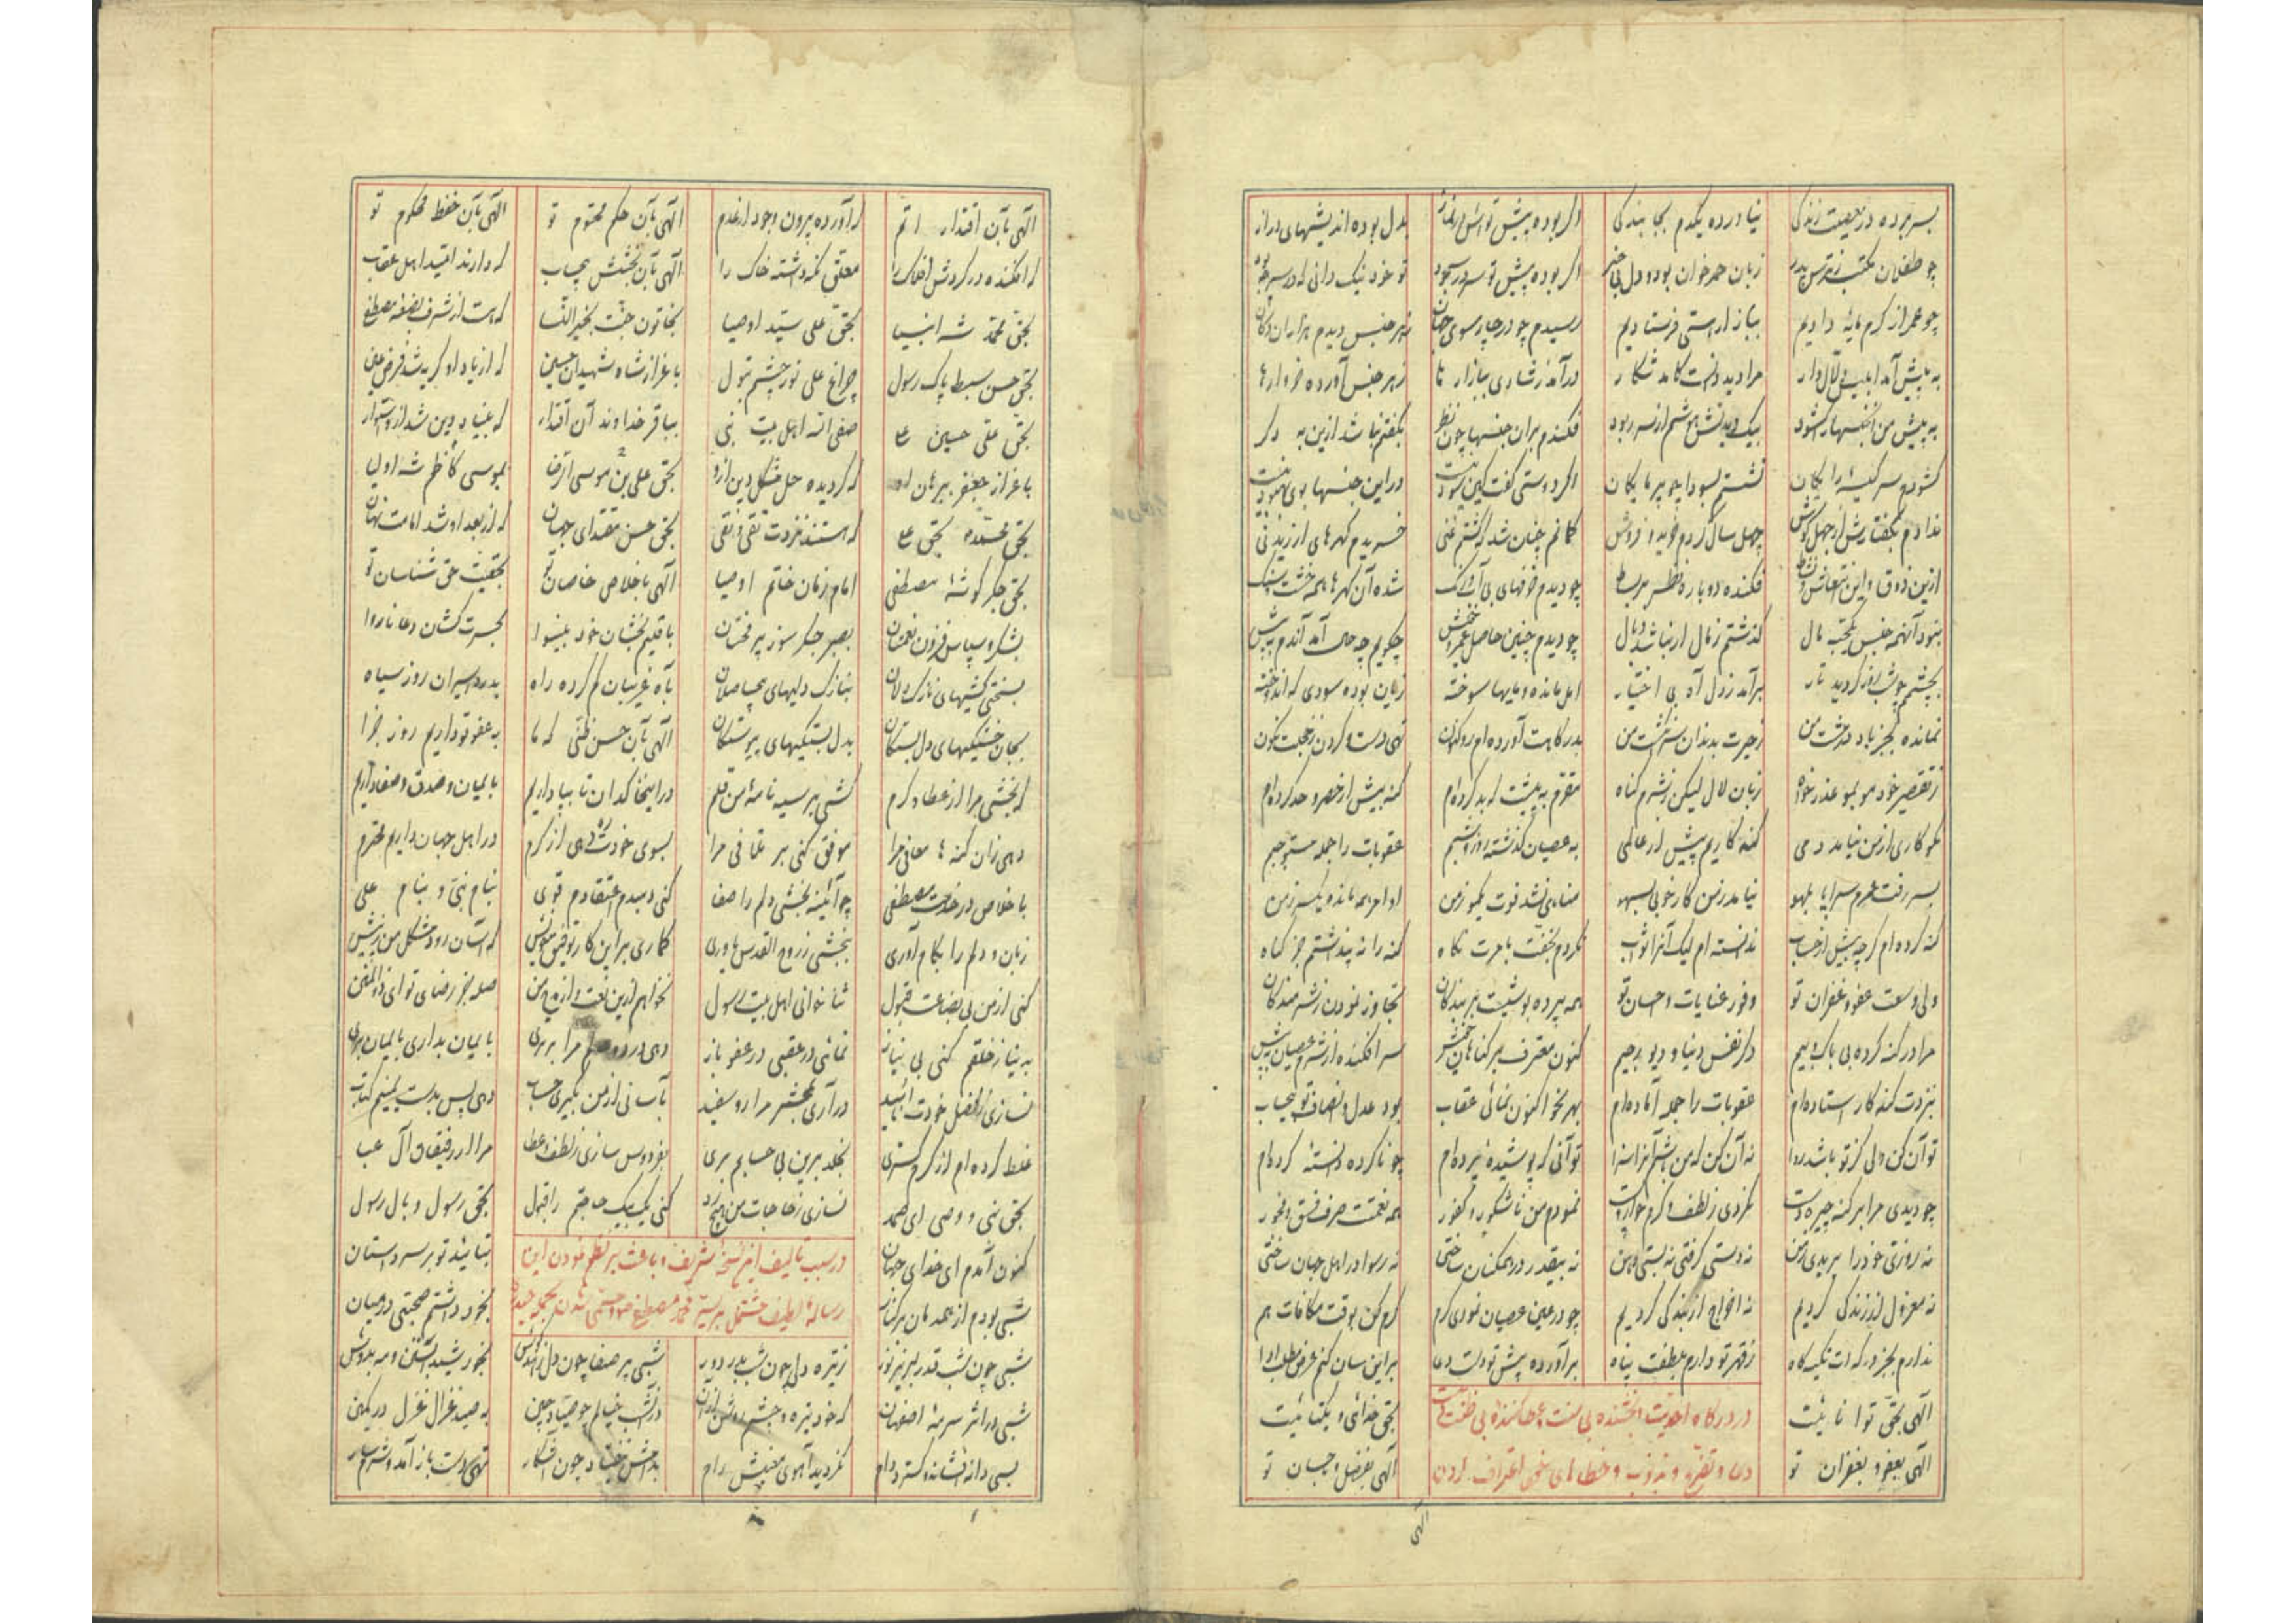 بسر برده در معصیت زندگی نیاورده یکدم بجا بندگی اگر بوده پیش تو اش در نماز بدل بوده اندیشهای دراز
چو طفلان بمکتب ز ترس پدر زبان حمد خوان بود و دل بی خبر اگر بوده پیش تو سر در سجود تو خود نیک دانی که در سر چه بود
چو عمر از کرم مایه دادیم ببازار هستی فرستادیم رسیدم چو در چارسوی جهان ز هر جنس دیدم هزاران دکان
به پیش آمد ابلیس دلال وار مرا دید و دانست کامد شکار درآمد ز شادی ببازار ما ز هر جنس آورده خروارها
به پیش من آن جنسها را گشود بیک دیدنش هوشم از سر ربود فکندم بران جنسها چون نظر بگفتم نباشد ازین به دگر
گشودم سر کیسه رایکان نشستم بسودا چو بی مایکان اگر دوستی گفت کین سود نیست در این جنسها بوی بهبود نیست
ندادم بگفتارش از جهل گوش چهل سال کردم خرید و فروش گمانم چنان شد که گشتم غنی خریدم گهرهای ارزیدنی
ازین ذوق و این انتعاش و نشاط فکنده دوباره نظر بر بساط چو دیدم خزفهای بی آب و رنگ شده آن گهرها همه خشت و سنگ
بنود آنهمه جنس یکحبه مال گذشتم ز مال ار نباشد وبال چو دیدم چنین حاصل عمر خویش چگویم چه حال آمد آندم به پیش
بچشمم چو شب روز گردید تار برآمد ز دل آه بی اختیار امل مانده و مایها سوخته زیان بوده سودی که اندوخته
نمانده بجز باد در مشت من ز حیرت بدندان سر انگشت من بدرگاهت آورده ام رو کنون تهی دست و گردن ز خجلت نگون
ز تقصیر خود مو بمو عذرخواه زبان لال لیکن ز شرم گناه مقرم به پیشت که بد کرده ام گنه بیش از حصر و حد کرده ام
نکوکاری از من نیامد دمی گنه کاریم پیش از عالمی به عصیان گذشته روز و شبم عقوبات را جمله مستوجبم
بسر رفت عمرم سراپا بلهو نیامد ز من کار خوبی بسهو مناهی نشد فوت یکمو ز من اوامر همه مانده یکسر ز من
گنه کرده ام گرچه بیش از حساب ندانسته ام لیک آنرا ثواب نکردم بخفت بامرت نگاه گنه را نه پنداشتم جز گناه
ولی وسعت عفو و غفران تو وفور عنایات و احسان تو همه پرده پوشیت بر بندگان تجاوز نمودن ز شرمندگان
مرا در گنه کرده بی باک و بیم دگر نفس دنیا و دیو رجیم کنون معترف بر گناهان خویش سر افکنده از شرم عصیان به پیش
بنزدت گنه کار استاده ام عقوبات را جمله آماده ام بهر نحو اکنون نمائی عقاب بود عدل و انصاف تو بیحساب
تو آن کن ولی کز تو باشد روا نه آن کن که من باشم آنرا سزا تو آنی که پوشیده نیزه ام چو ناکرده دانسته کرده ام
چو دیدی مرا بر گنه چیره دست نکردی ز لطف و کرم خوار و پست نمودم من ناشکور و کفور همه نعمتت صرف فسق و فجور
نه روزی خود را بریدی ز من نه دستی گرفتی نه بستی دهن نه بیقدر در ممکنان ساختی نه رسوا در اهل جهان ساختی
نه معزول از زندگی کردیم نه اخراج از بندگی کردیم چو در عین عصیان نمودی کرم کرم کن بوقت مکافات هم
ندارم بجز درگهت تکیه گاه ز قهر تو دارم بلطفت پناه برآورده پیش تو دست دعا بر این سان کنم عرض مطلب ادا
در درگاه احدیت بخشنده بی منت و عطا کننده بی ضنت
الهی بحق توانائیت بحق خدائی و یکتائیت
دعا و تضرع و بذنوب و خطاهای خود اعتراف کردن
الهی بعفو و بغفران تو الهی بفضل و باحسان تو
الهی
الهی بآن اقتدار اتم که آورده بیرون وجود از عدم الهی بآن حکم محتوم تو الهی بآن حفظ محکوم تو
که افکنده در گردش افلاک را معلق نگه داشته خاک را الهی بآن بخشش بیحساب که دارند امید اهل عقاب
بحق محمد شه انبیا بحق علی سید اوصیا بخاتون جنت بخیر النسا که هست از شرف بضعه مصطفی
بحق حسن سبط پاک رسول چراغ علی نور چشم بتول باعزاز شاه شهیدان حسین که از یاد او گریه شد فرض عین
بحق علی حسین علی صفی الله اهل بیت نبی بباقر خداوند آن اقتدار که بنیاد دین شد ازو استوار
باعزاز جعفر ببرهان او که گردیده حل مشکل دین ازو بحق علی بن موسی الرضا بموسی کاظم شه اولیا
بحق محمد بحق علی که هستند نزدت تقی و نقی بحق حسن مقتدای جهان که از بعد او شد امامت نهان
بحق جگرگوشه مصطفی امام زمان خاتم اوصیا الهی باخلاص خاصان تو بحقیت حق شناسان تو
بشکر و سپاس فزون نعمتان بصبر جگرسوز پر محنتان باقلیم بخشان خود بینوا بحسرت کشان دعا ناروا
بسختی کشیهای نازک دلان بنازک دلیهای بیحاصلان بآه غریبان گم کرده راه بدرد اسیران روز سیاه
بجان خستگیهای دل بستگان بدل بستگیهای پیوستگان الهی بآن حسن ظنی که ما به عفو تو داریم روز جزا
که بخشی مرا از عطا و کرم کشی بر سیه نامه من قلم در اینخاکدان تا بپا داریم بایمان و صدق و صفا داریم
دهی زان گنه ها معافی مرا موفق کنی بر تلافی مرا بسوی خودت ره دهی از کرم در اهل جهان داریم محترم
باخلاص در خدمت مصطفی چو آئینه بخشی دلم را صفا کنی دمبدم اعتقادم قوی بنام نبی و بنام علی
زبان و دلم را بکام آوری ببخشی ز روح القدس یاوری گماری بر این کار توفیق خویش که آسان رود مشکل من ز پیش
کنی از من بی بضاعت قبول ثنا خوانی اهل بیت رسول نخواهم ازین نعت و ازین من صله جز رضای تو ای ذوالمنن
به نیاز خلقم کنی بی نیاز نمائی در عقبی در عفو باز دهی در دو مرا برتری بایمان بداری بایمان بری
نسازی از فضل خودت ناامید درآری بمحشر مرا رو سفید بآسانی از من بگیری حساب دهی پس بدست یمینم کتاب
غلط کرده ام از کرم گستری بخلد برین بی حسابم بری بفردوس سازی ز لطف و عطا مرا از رفیقان آل عبا
بحق نبی و وصی ای صمد نسازی ز حاجات من هیچ رد کنی یک بیک حاجتم را قبول بحق رسول و بآل رسول
در سبب تالیف این نسخه شریف و باعث بر نظم نمودن این
کنون آمدم ای خدای جهان بتائید تو بر سر داستان
رساله لطیف مشتمل بر سیر محمد مصطفی
شبی بودم از همدمان بر کنار بخود داشتم صحبتی در میان
شبی چون شب قدر لبریز نور ز تیره دلی چون شب بدر دور شبی پر صفا چون دل بخور شید آبستن و مه بدوش
شبی در اثر سرمه اصفهان که خود تیره و چشم روشن ازان در آن شب خیالم چو صیاد چین به صید غزال غزل در کمین
بسی دانه افشانده گسترد دام نگردید آهوی معنیش رام بدامش نیفتاد چون آن شکار تهی دست باز آمد و شرمسار